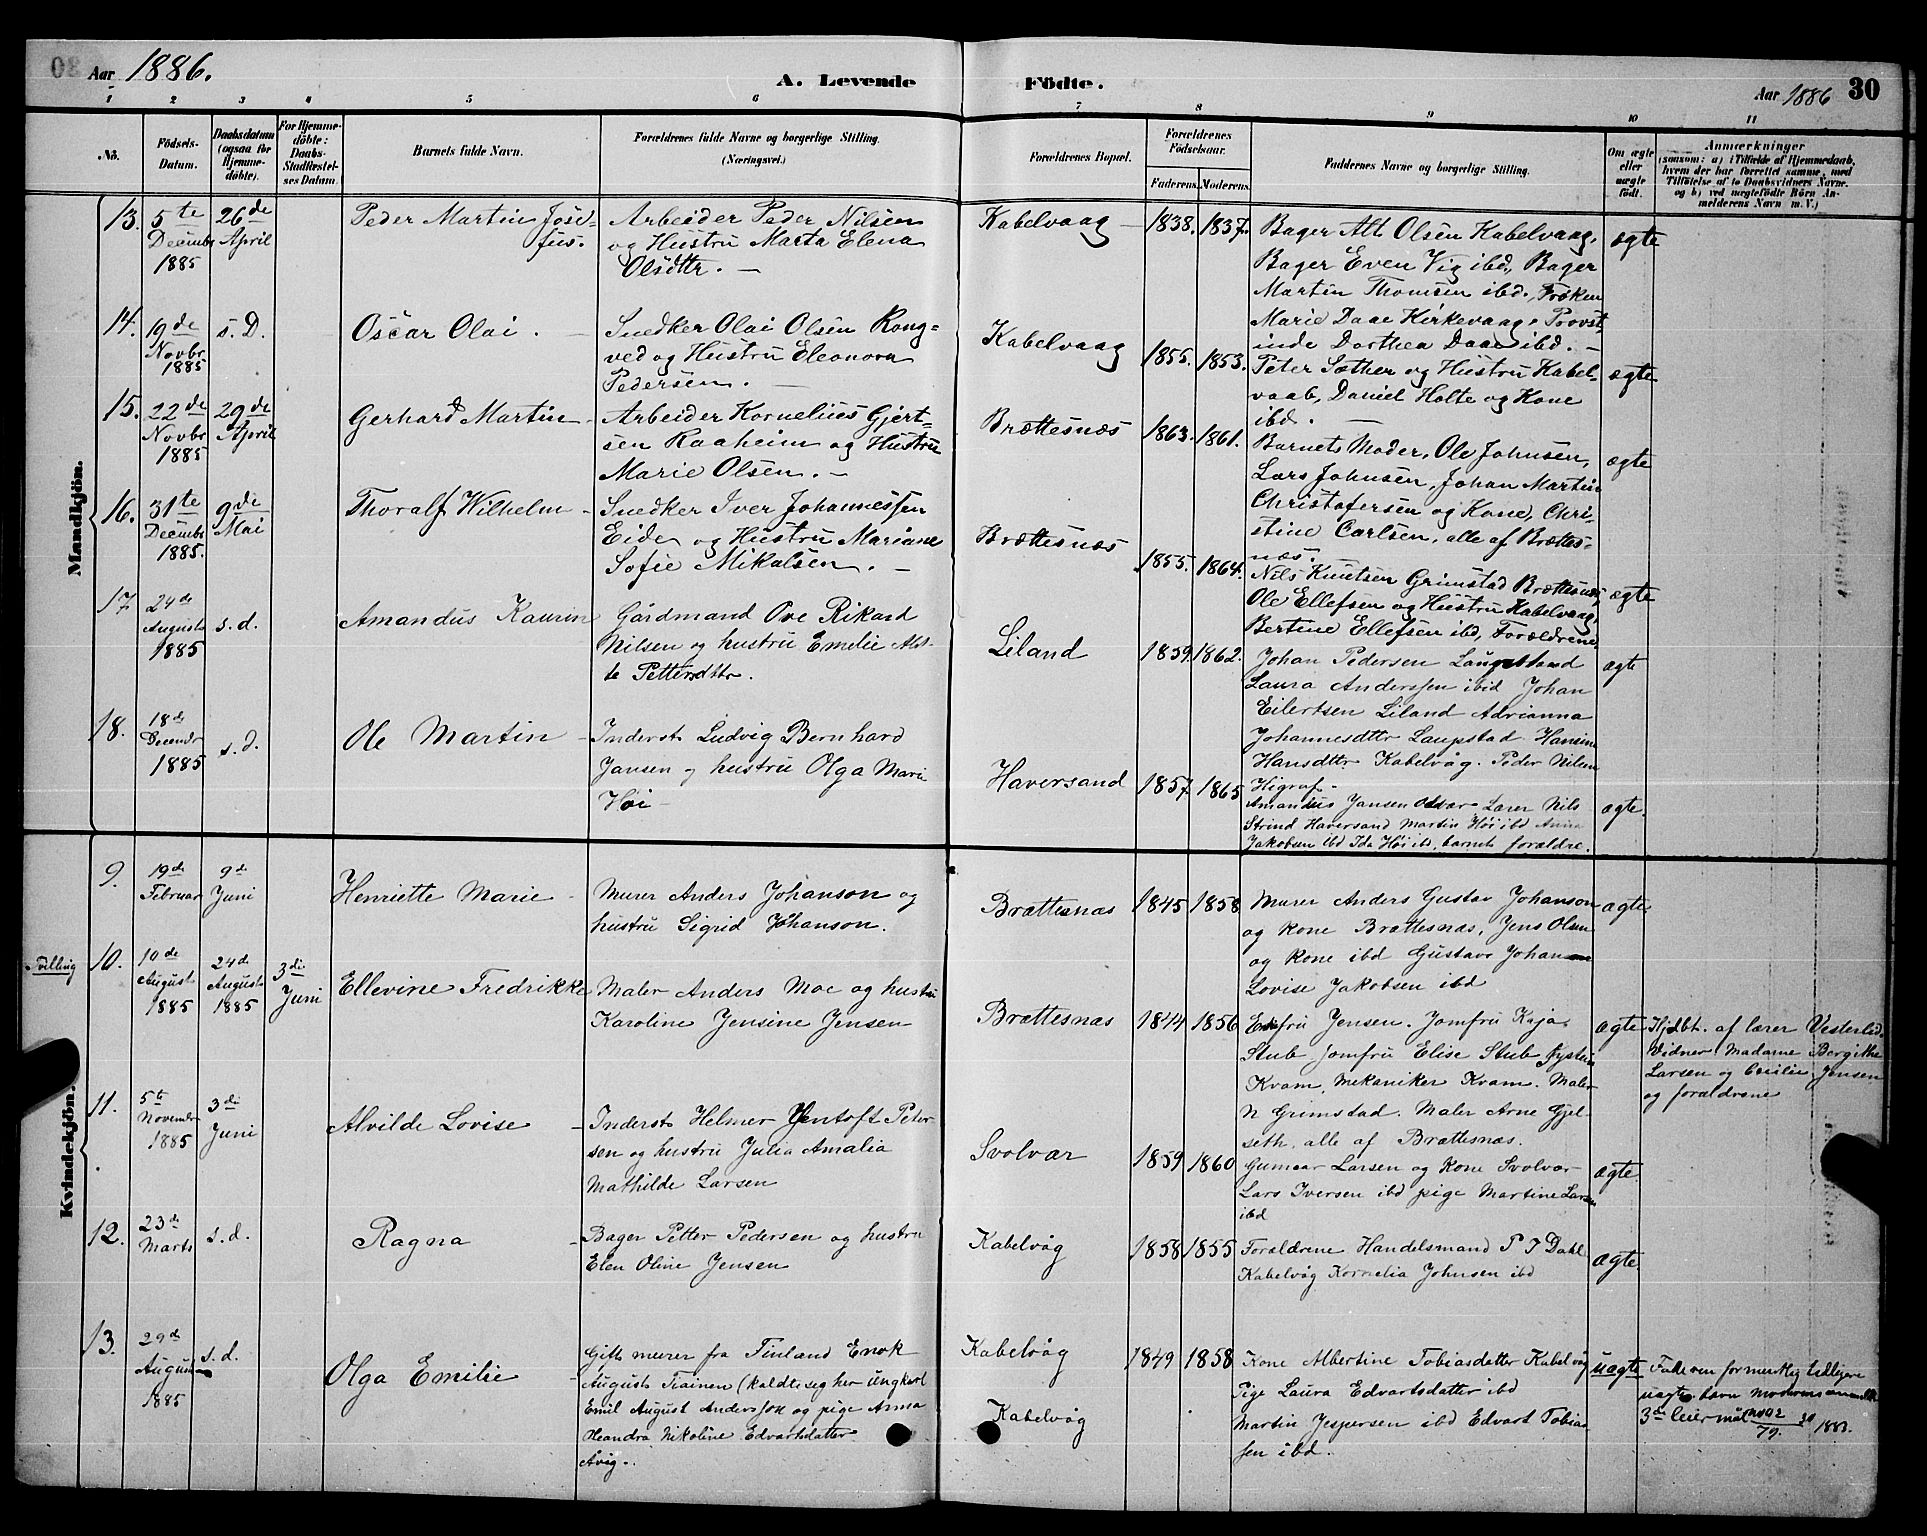 Aar 1886.
A. Levende Födte.
Aar 1886 30
1 2 3 4 5 6 7 8 9 10 11
No.
Födsels-Datum.
Daabsdatum (ogsaa for Hjemmedöbte).
For Hjemmedöbte: Daabs-Stadfæstelses Datum.
Barnets fulde Navn.
Forældrenes fulde Navne og borgerlige Stilling. (Næringsvei.)
Forældrenes Bopæl.
Forældrenes Födselsaar.
Faderens. Moderens.
Faddernes Navne og borgerlige Stilling.
Om ægte eller uægte födt.
Anmærkninger
(saasom: a) i Tilfælde af Hjemmedaab, hvem der har forrettet samme, med Tilföielse af to Daabsvidners Navne, og b) ved uægtefödte Börn Anmelderens Navn m. V.)
Mandkjön.
13. 5te Decembr 1885
26de April
Peder Martin Josefus.
Arbeider Peder Nilsen
og Hustru Marta Elena
Olsdttr. —
Kabelvaag — 1838. 1837.
Bager Alb Olsen Kabelvaag,
Bager Even Vig ibd, Bager
Martin Thomsen ibd., Frøken
Marie Daae Kirkevaag, Provst
inde Dorthea Daae ibd. —
ægte
14. 19de Novbr 1885
s. D.
Oscar Olai.
Snedker Olai Olsen Rong=
ved og Hustru Eleonora
Pedersen. —
Kabelvaag 1855. 1853.
Peter Sæther og Hustru Kabel=
vaab, Daniel Holte og Kone
ibd. —
ægte
15. 22de Novbr 1885
29de April
Gerhard Martin —
Arbeider Kornelius Gjert=
sen Raaheim og Hustru
Marie Olsen. —
Brættesnæs 1863. 1861.
Barnets Moder, Ole Johnsen,
Lars Johnsen, Johan Martin
Christofersen og Kone, Chri=
stine Carlsen, alle af Brættes=
næs.
ægte
16. 31te Decembr 1885.
9de Mai
Thoralf Wilhelm —
Snedker Iver Johannessen
Eide og Hustru Mariane
Sofie Mikalsen. —
Brættesnæs 1855. 1864.
Nils Knutsen Grimstad Brættesnæs,
Ole Ellefsen og Hustru Kabelvaag,
Bertine Ellefsen ibd, Forældrene
ægte
17 24de Augusts 1885
s. d.
Amandus Kaurin
Gårdmand Ove Rikard
Nilsen og hustru Emelie
Pettersdttr.
Liland 1859. 1862.
Johan Pedersen
Laura Anderssen ibid Johan
Eilertsen Liland Adrianna
Johannesdttr Laupstad Hansine
Hansdttr Kabelvåg. Peder Nilsen
Higraf.
ægte
18. 18de Decembr 1885
s. d.
Ole Martin —
Inderst Ludvig Bernhard
Jansen og hustru Olga Marie
Høi —
Haversand 1857 1865
Amandus Jansen Lærer Nils
Strind Haversand Martin Høi ibd Anna
Jakobsen ibd Ida Høi ibd, barnets forældre.
ægte.
Kvindekjön.
9. 19de Februar
9de Juni
Henriette Marie —
Murer Anders Johanson og
hustru Sigrid Johanson.
Brættesnæs 1845 1858
Murer Anders Gustav Johanson
og kone Brættesnæs, Jens Olsen
og kone ibd Gustav Johan
Lovise Jakobsen ibd
ægte
Tvilling
10. 10de August 1885
24de August 1885
3die Juni
Ellevine Fredrikke
Maler Anders Moe og hustru
Karoline Jensine Jensen
Brættesnæs 1844 1856
Jensen. Jomfru Kaja
Stub Jomfru Elise Stub
Kvam, Mekaniker Kvam. Maler
N Grimstad. Maler Arne Gjel
seth, alle af Brættesnæs.
ægte
Hjdbt. af lærer Vesterlid.
Vidner Madame Bergithe
Larsen og Jensen
og forældrene
11. 5te Novembr 1885
3die Juni
Alvilde Lovise
Inderst Helmer Jentoft Peter
sen og hustru Julia Amalia
Mathilde Larsen
Svolvær 1859 1860
Gunnar Larsen og kone Svolvær
Lars Iversen ibd pige Martine Larsen
ibd
ægte
12. 23de Marts
s. d.
Ragna
Bager Petter Pedersen og hustru
Elen Oline Jensen
Kabelvåg 1858 1855
Forældrene Handelsmand P J Dahl
Kabelvåg Kornelia Johnsen ibd
ægte.
13. 29de August 1885
s. d.
Olga Emilie
Gift murer fra Finland Enok
August Tiainen (kaldte seg her ungkarl
Emil August Andersson og pige Anna
Heandra Nikoline Edvartsdatter
Avig.
Kabelvåg
Kabelvåg
1849 1858
Kone Albertine Tobiasdatter Kabelvåg
Pige Laura Edvartsdatter ibd
Martin Jespersen ibd Edvart Tobia
sen ibd.
uægte
Faderen formentlig tidligere
uægte barn Moderens
3die leiermål